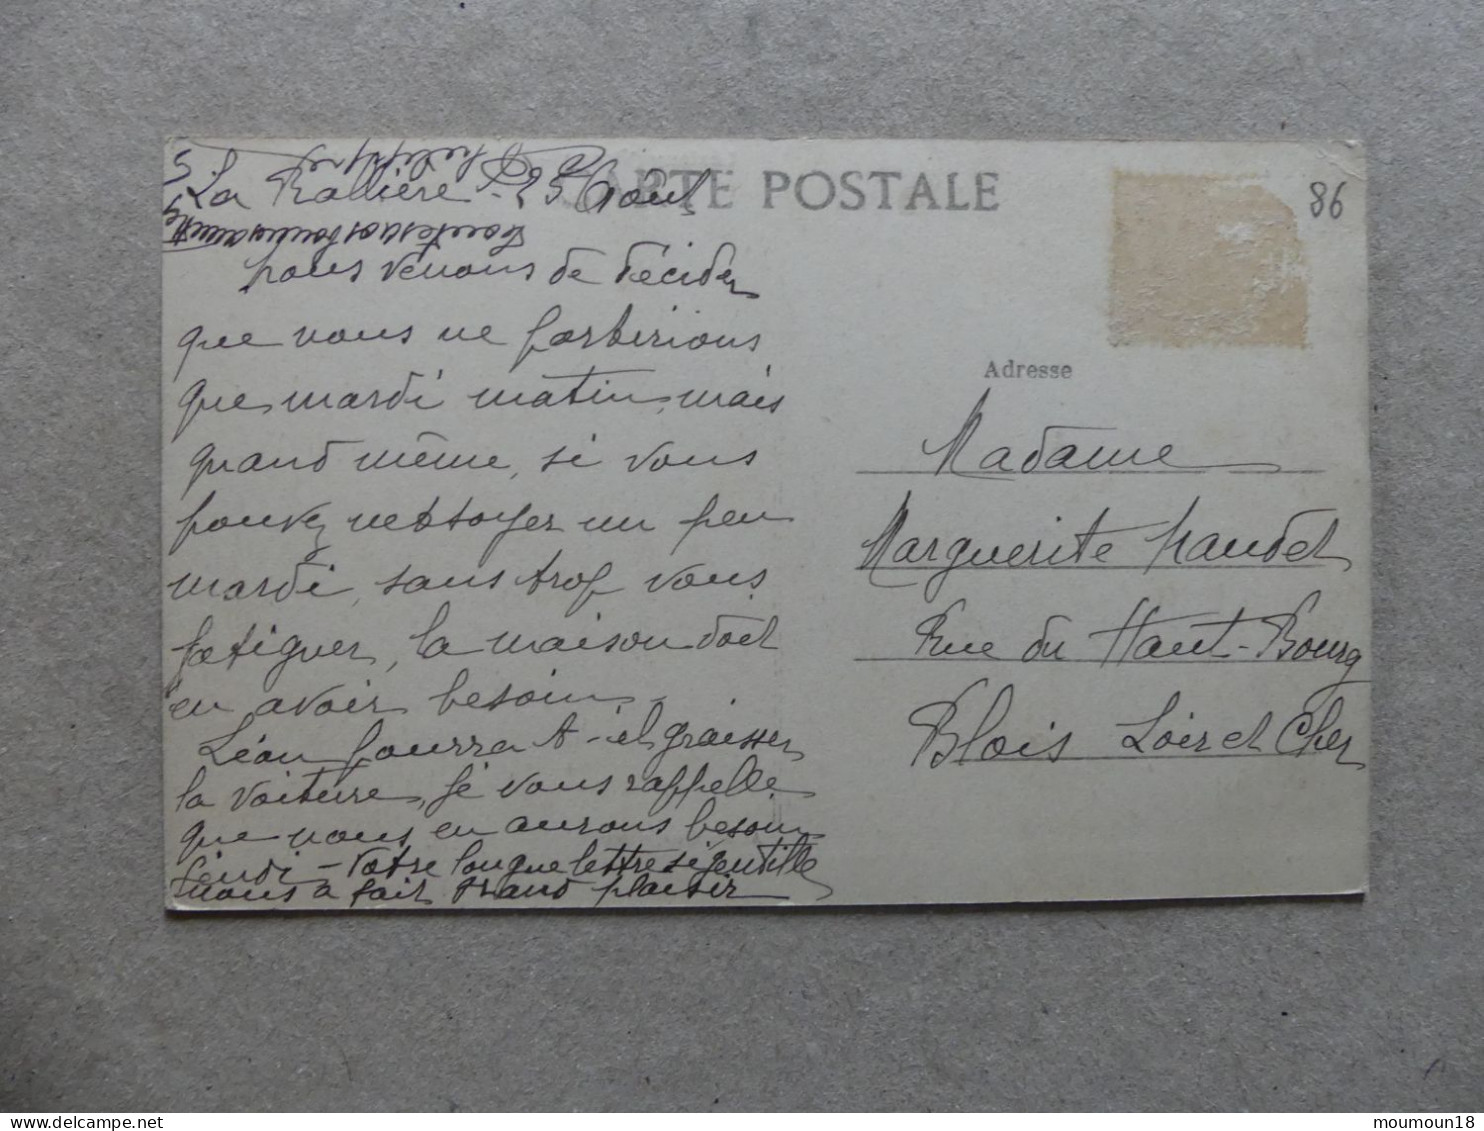 La Rallière - 25 Août
CARTE POSTALE
86
Nous venons de décider
que nous ne partirions
que mardi matin, mais
quand même, si vous
pouvez nettoyer un peu
mardi, sans trop vous
fatiguer, la maison doit
en avoir besoin.
Léon pourra t-il graisser
la voiture, je vous rappelle
que nous en aurons besoin
- Votre longue lettre si gentille
nous a fait grand plaisir
Toutes vos
Adresse
Madame
Marguerite Naudet
Rue du Haut-Bourg
Blois Loir et Cher
moumoun18